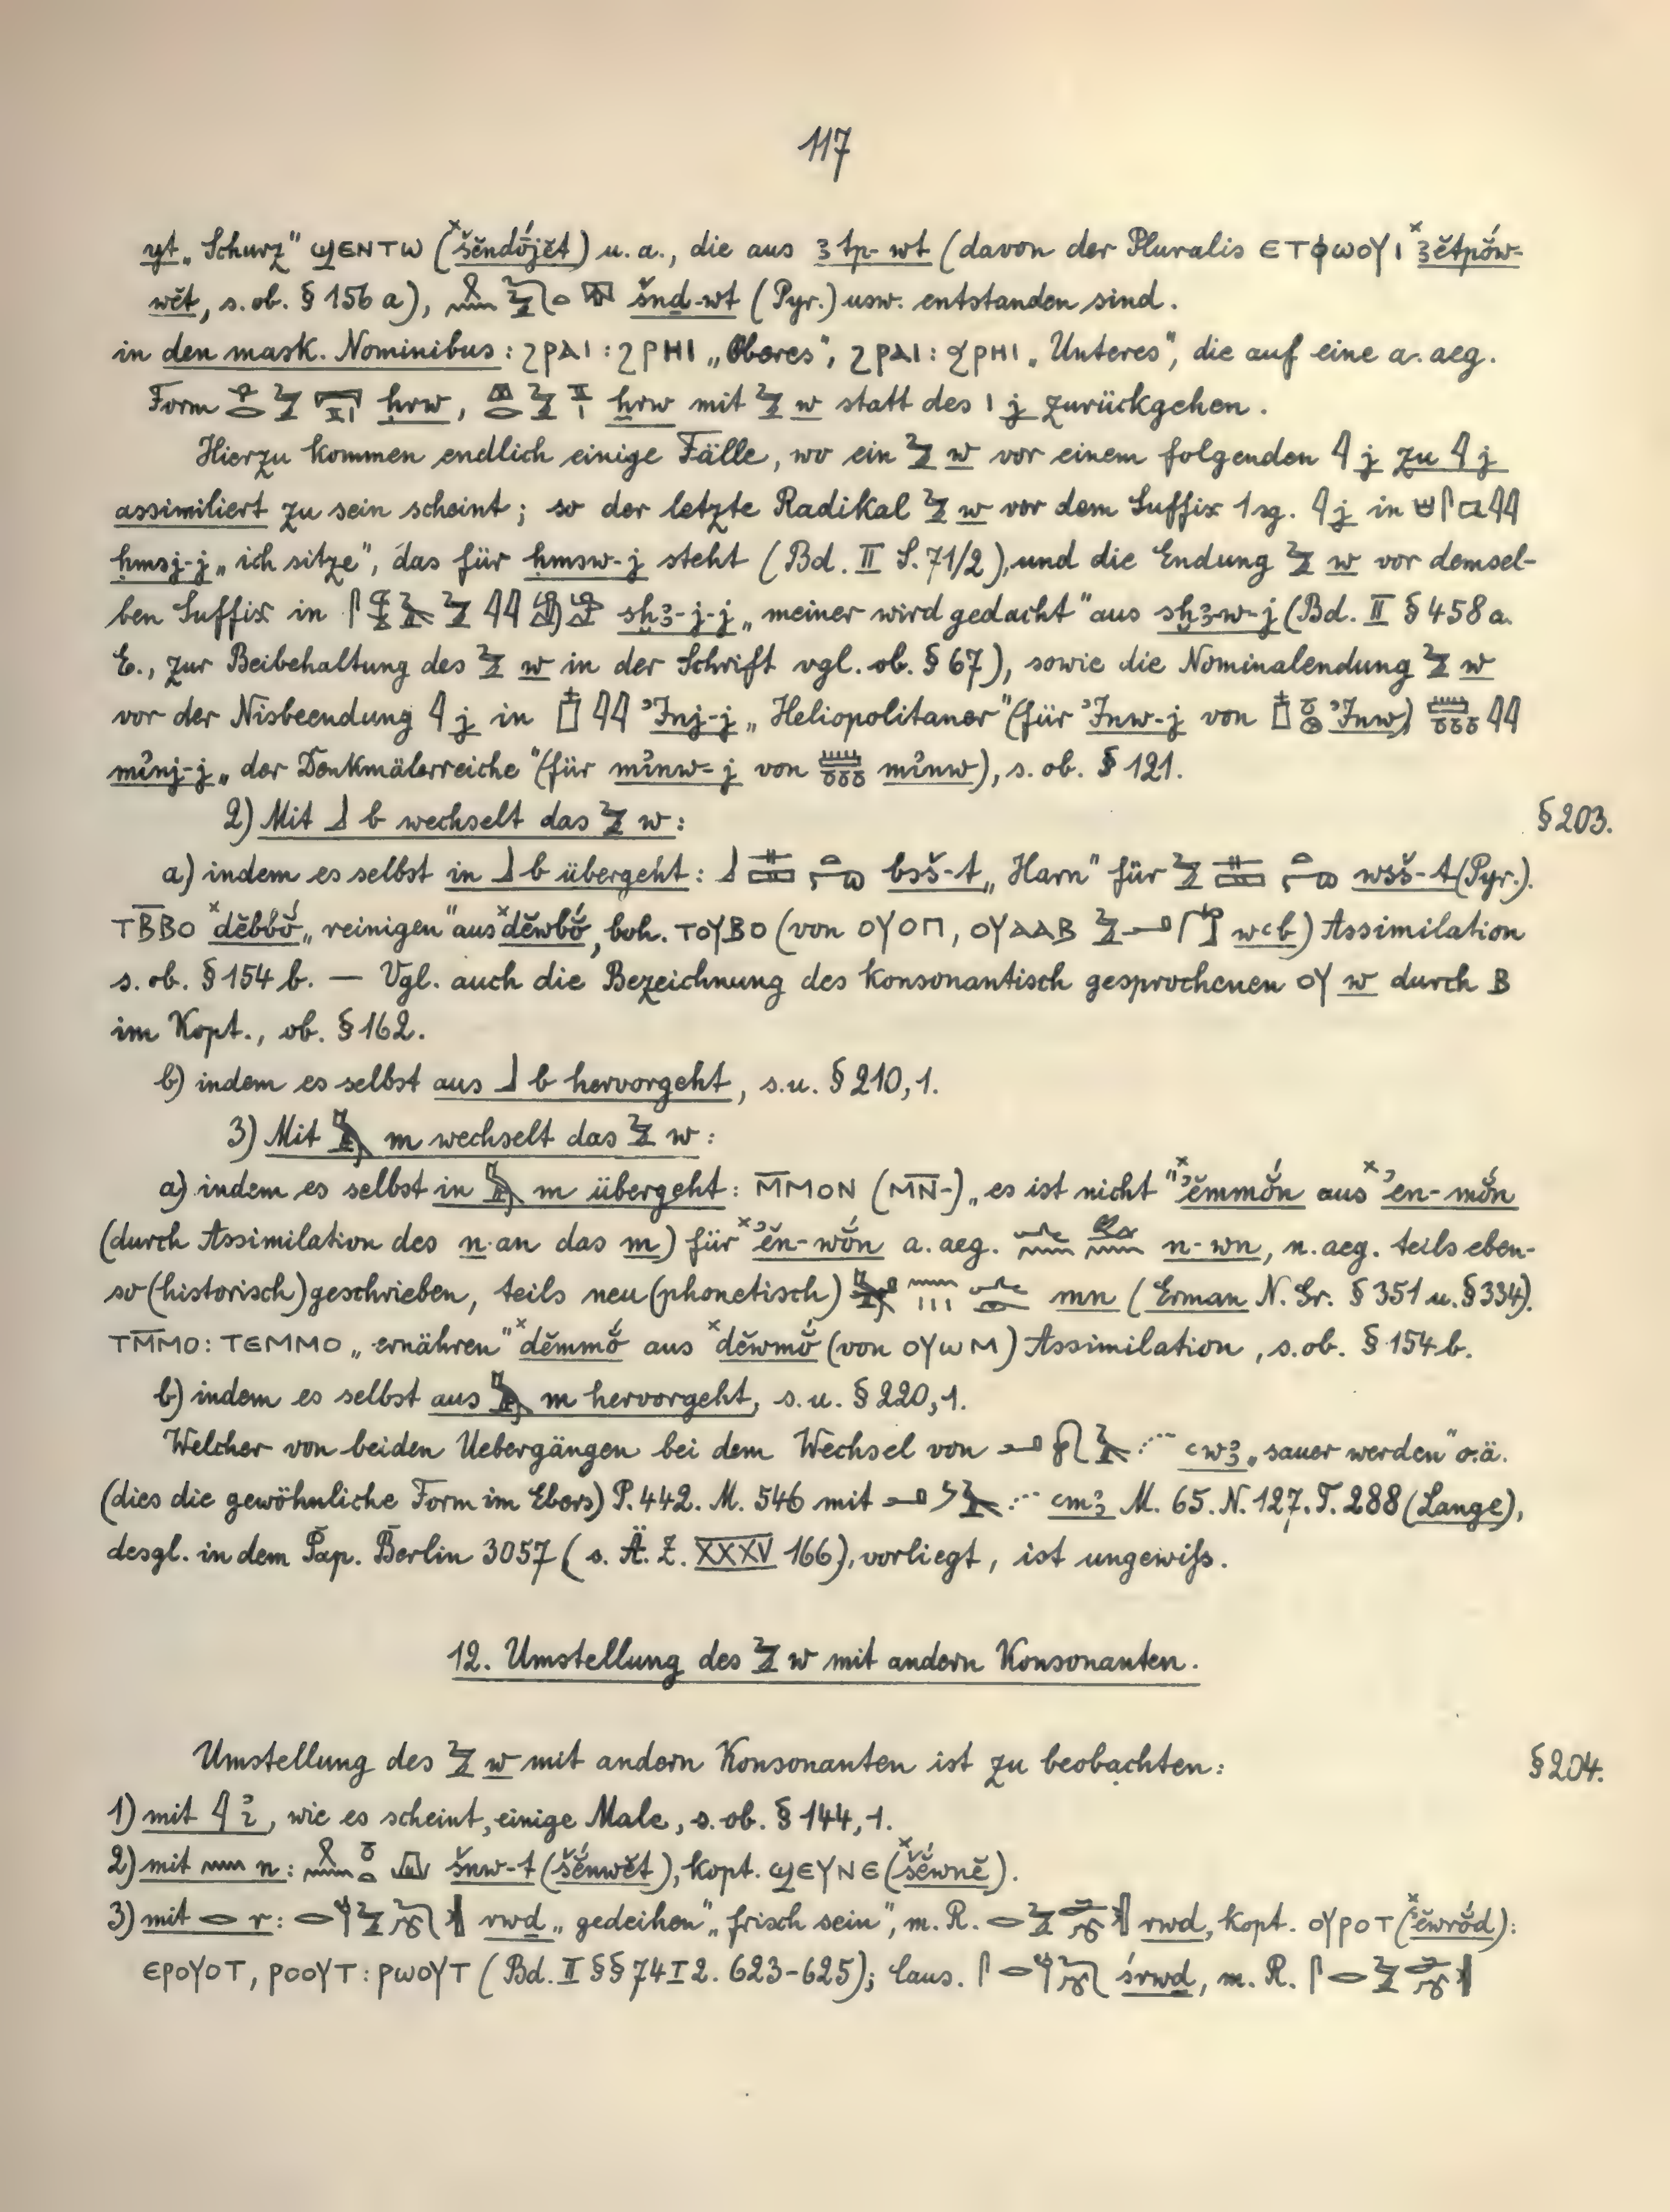 117
yt „Schurz" ϣⲉⲛⲧⲱ (ˣšĕndṓjĕt) u. a., die aus 3tp-wt (davon der Pluralis ⲉⲧϕⲱⲟⲩⲓ ˣ3ĕtpṓw-
wĕt, s. ob. § 156 a), šnd-wt (Pyr.) usw. entstanden sind.
in den mask. Nominibus: ϩⲣⲁⲓ : ϩⲣⲏⲓ „Oberes", ϩⲣⲁⲓ : ϧⲣⲏⲓ „Unteres", die auf eine a. aeg.
Form ḥrw, ẖrw mit w statt des j zurückgehen.
Hierzu kommen endlich einige Fälle, wo ein w vor einem folgenden j zu j
assimiliert zu sein scheint; so der letzte Radikal w vor dem Suffix 1 sg. j in
ḥmsj-j „ich sitze", das für ḥmsw-j steht (Bd. II S. 71/2), und die Endung w vor demsel-
ben Suffix in sḫ3-j-j „meiner wird gedacht" aus sḫ3-w-j (Bd. II § 458 a.
E., zur Beibehaltung des w in der Schrift vgl. ob. § 67), sowie die Nominalendung w
vor der Nisbeendung j in ʾInj-j „Heliopolitaner" (für ʾInw-j von ʾInw)
mı͗nj-j „der Denkmälerreiche" (für mı͗nw-j von mı͗nw), s. ob. § 121.
2) Mit b wechselt das w: § 203.
a) indem es selbst in b übergeht: bsš-t „Harn" für wsš-t (Pyr.).
ⲧⲃ̅ⲃⲟ ˣdĕbbŏ́ „reinigen" aus ˣdĕwbŏ́, boh. ⲧⲟⲩⲃⲟ (von ⲟⲩⲟⲡ, ⲟⲩⲁⲁⲃ wꜥb) Assimilation
s. ob. § 154 b. — Vgl. auch die Bezeichnung des konsonantisch gesprochenen ⲟⲩ w durch ⲃ
im Kopt., ob. § 162.
b) indem es selbst aus b hervorgeht, s. u. § 210, 1.
3) Mit m wechselt das w:
a) indem es selbst in m übergeht: ⲙ̅ⲙⲟⲛ (ⲙⲛ̅-) „es ist nicht" ˣʾĕmmŏ́n aus ˣʾen-mŏ́n
(durch Assimilation des n an das m) für ˣʾĕn-wŏ́n a. aeg. n-wn, n. aeg. teils eben-
so (historisch) geschrieben, teils neu (phonetisch) mn (Erman N. Gr. § 351 u. § 334).
ⲧⲙ̅ⲙⲟ : ⲧⲉⲙⲙⲟ „ernähren" ˣdĕmmŏ́ aus ˣdĕwmŏ́ (von ⲟⲩⲱⲙ) Assimilation, s. ob. § 154 b.
b) indem es selbst aus m hervorgeht, s. u. § 220, 1.
Welcher von beiden Uebergängen bei dem Wechsel von ꜥw3 „sauer werden" o. ä.
(dies die gewöhnliche Form im Ebers) P. 442. M. 546 mit ꜥm3 M. 65. N. 127. T. 288 (Lange),
desgl. in dem Pap. Berlin 3057 (s. Ä. Z. XXXV 166), vorliegt, ist ungewiß.
12. Umstellung des w mit andern Konsonanten.
Umstellung des w mit andern Konsonanten ist zu beobachten: § 204.
1) mit ı͗, wie es scheint, einige Male, s. ob. § 144, 1.
2) mit n: šnw-t (šĕ́nwĕt), kopt. ϣⲉⲩⲛⲉ (ˣšĕ́wnĕ).
3) mit r: rwd „gedeihen", „frisch sein", m. R. rwd, kopt. ⲟⲩⲣⲟⲧ (ˣʾĕwrŏ́d):
ⲉⲣⲟⲩⲟⲧ, ⲣⲟⲟⲩⲧ : ⲣⲱⲟⲩⲧ (Bd. II §§ 74 I 2. 623-625); Caus. śrwd, m. R.